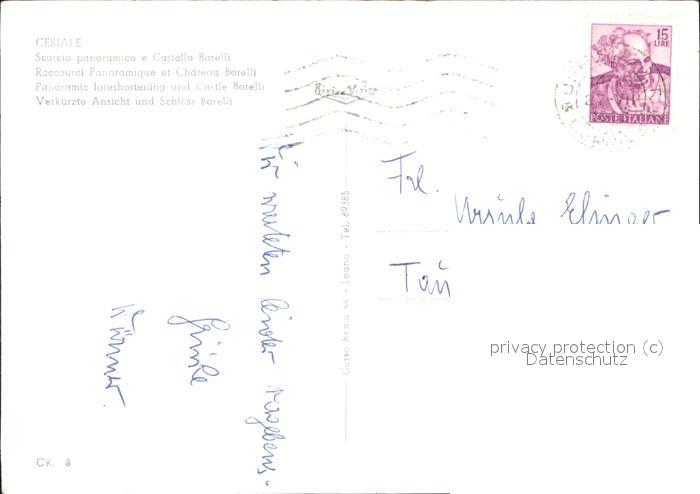 CERIALE
Scorcio panoramico e Castello Borelli
Raccourci Panoramique et Château Borelli
Panoramic foreshortening and Castle Borelli
Verkürzte Ansicht und Schloss Borelli
15
LIRE
POSTE ITALIANE
Frl.
Ursula
Wir warteten leider vergebens.
Grüße
Corso Roma 44 - Loano - Tel. 69385
privacy protection (c)
Datenschutz
CK. 8